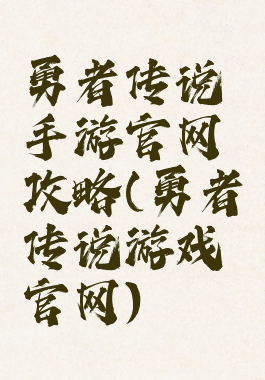 勇者传说
手游官网
攻略(勇者
传说游戏
官网)